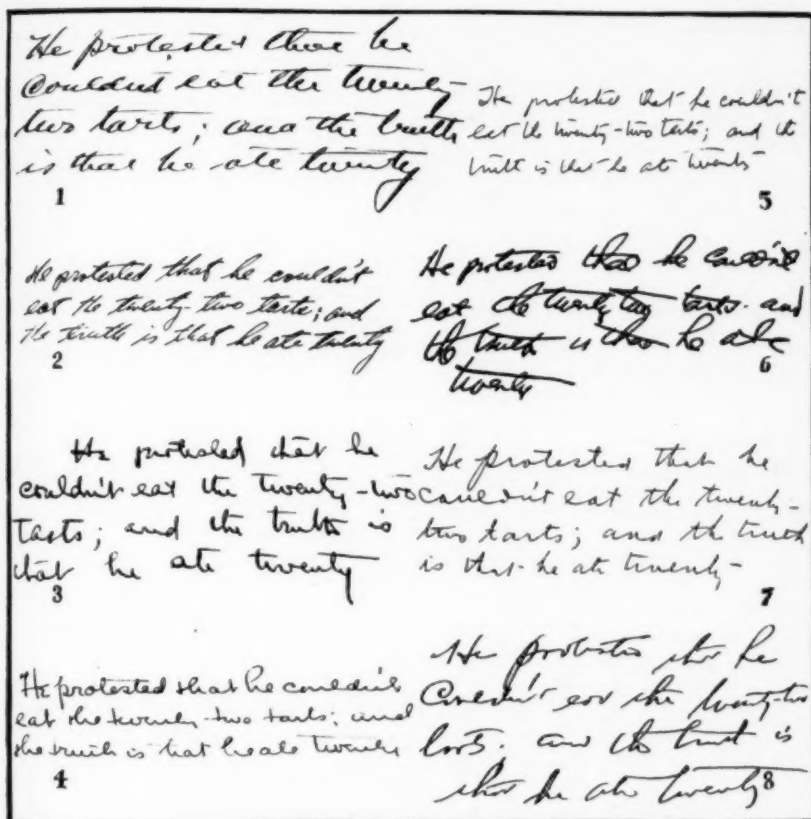 He protested that he
couldn't eat the twenty
two tarts; and the truth
is that he ate twenty
1
He protested that he couldn't
eat the twenty-two tarts; and the
truth is that he ate twenty
5
He protested that he couldn't
eat the twenty-two tarts; and
the truth is that he ate twenty
2
He protested that he couldn't
eat the twenty two tarts. and
the truth is that he ate
twenty
6
He protested that he
couldn't eat the twenty-two
tarts; and the truth is
that he ate twenty
3
He protested that he
couldn't eat the twenty-
two tarts; and the truth
is that he ate twenty-
7
He protested that he couldn't
eat the twenty-two tarts; and
the truth is that he ate twenty
4
He protested that he
Couldn't eat the twenty-two
tarts. and the truth is
that he ate twenty
8